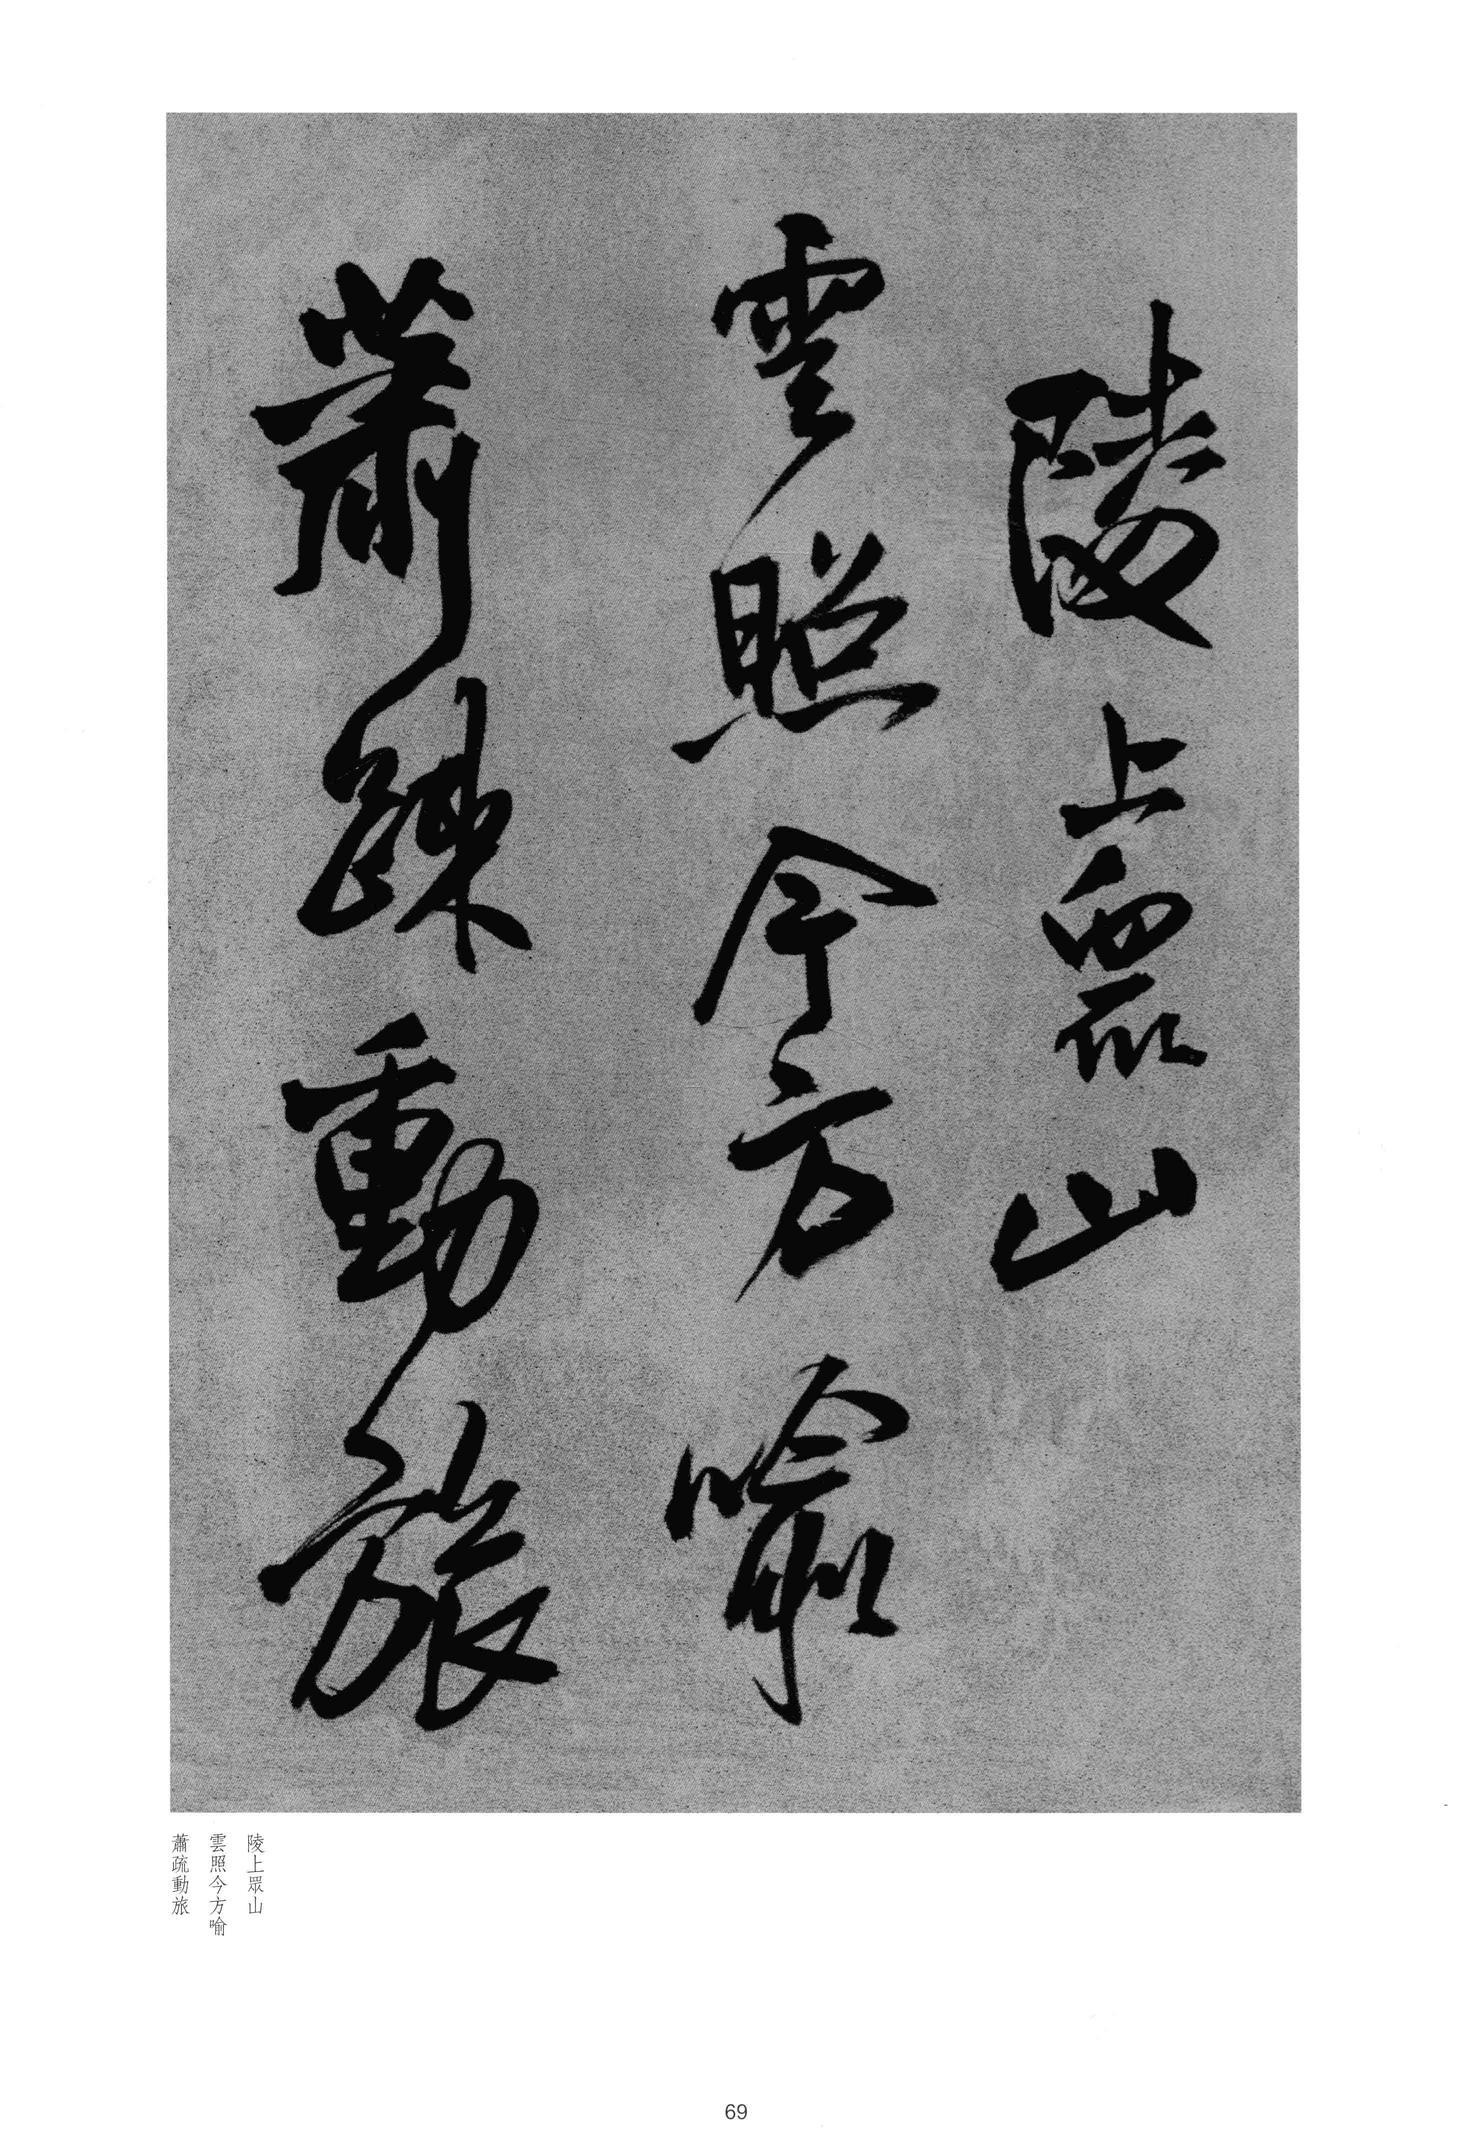 陵上眾山
雲照今方喻
蕭疏動旅
陵上眾山
雲照今方喻
蕭疏動旅
69